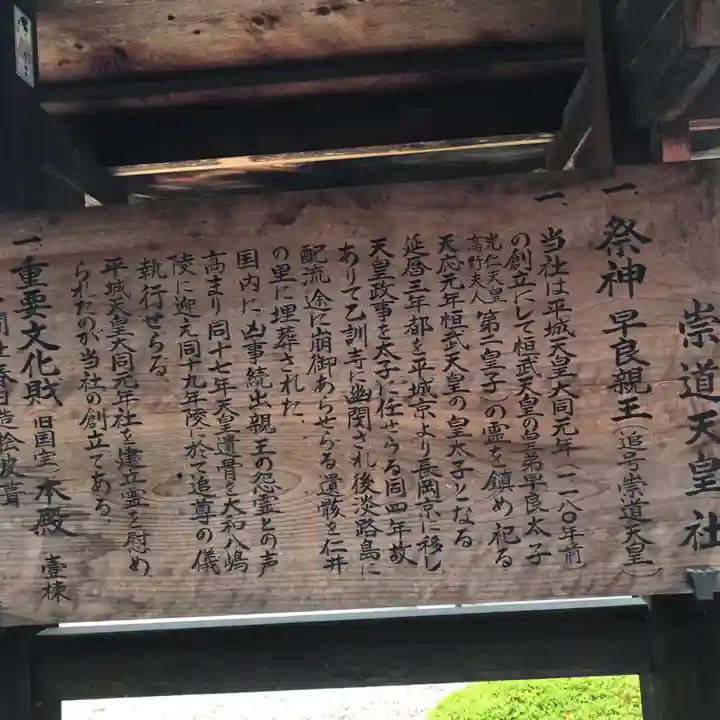 崇道天皇社
一、祭神 早良親王(追号崇道天皇)
一、当社は平城天皇大同元年(一一八〇年前)
の創立にして恒武天皇の皇弟早良太子
(光仁天皇高野夫人第二皇子)の霊を鎮め祀る
天応元年恒武天皇の皇太子となる
延暦三年都を平城京より長岡京に移し
天皇政事を太子に任せらる同四年故
ありて乙訓寺に幽閉され後淡路島に
配流途に崩御あらせらる遺骸を仁井
の里に埋葬された
国内に凶事続出親王の怨霊との声
高まり同十七年天皇遺骨を大和八嶋
陵に迎え同十九年陵に於て追尊の儀
執行せらる
平城天皇大同元年社を建立霊を慰め
られたのが当社の創立である
一、重要文化財(旧国宝)本殿 壹棟
一間社春日造桧皮葺